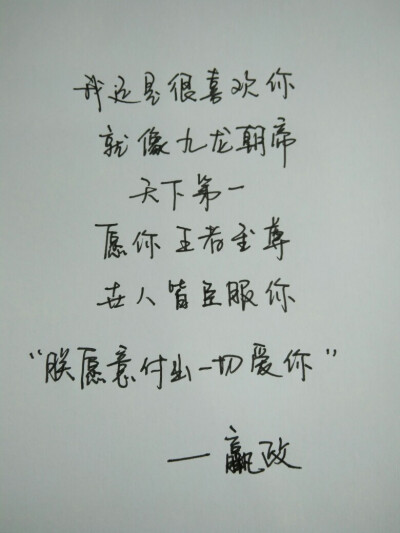 我还是很喜欢你
就像九龙朝帝
天下第一
愿你王者至尊
世人皆臣服你
“朕愿意付出一切爱你”
—嬴政